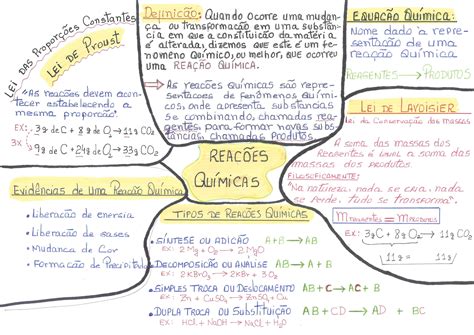 LEI DAS PROPORÇÕES CONSTANTES
LEI DE PROUST
"AS REAÇÕES DEVEM ACON-
TECER ESTABELECENDO A
MESMA PROPORÇÃO".
EX: 3g DE C + 8g DE O₂ → 11g CO₂
9g DE C + 24g DE O₂ → 33g CO₂
DEFINIÇÃO: QUANDO OCORRE UMA MUDAN-
ÇA OU TRANSFORMAÇÃO EM UMA SUBSTÂN-
CIA EM QUE A CONSTITUIÇÃO DA MATÉRIA
É ALTERADA, DIZEMOS QUE ESTE É UM FE-
NÔMENO QUÍMICO, OU MELHOR, QUE OCORREU
UMA REAÇÃO QUÍMICA.
AS REAÇÕES QUÍMICAS SÃO REPRE-
SENTAÇÕES DE FENÔMENOS QUÍMI-
COS, ONDE APRESENTA SUBSTÂNCIAS
SE COMBINANDO, CHAMADAS REA-
GENTES, PARA FORMAR NOVAS SUBS-
TÂNCIAS, CHAMADAS PRODUTOS.
EQUAÇÃO QUÍMICA:
NOME DADO A REPRE-
SENTAÇÃO DE UMA
REAÇÃO QUÍMICA
REAGENTES → PRODUTOS
LEI DE LAVOISIER
LEI DA CONSERVAÇÃO DAS MASSAS
A SOMA DAS MASSAS DOS
REAGENTES É IGUAL A SOMA DAS
MASSAS DOS PRODUTOS.
FILOSOFICAMENTE:
"NA NATUREZA NADA SE CRIA, NADA
SE PERDE, TUDO SE TRANSFORMA".
M REAGENTES = M PRODUTOS
3g C + 8g O₂ → 11g CO₂
11g = 11g
REAÇÕES
QUÍMICAS
EVIDÊNCIAS DE UMA REAÇÃO QUÍMICA
• LIBERAÇÃO DE ENERGIA
• LIBERAÇÃO DE GASES
• MUDANÇA DE COR
• FORMAÇÃO DE PRECIPITADO
TIPOS DE REAÇÕES QUÍMICAS
• SÍNTESE OU ADIÇÃO A+B → AB
EX: 2Mg + O₂ → 2MgO
• DECOMPOSIÇÃO OU ANÁLISE AB → A+B
EX: 2KBrO₃ → 2KBr + 3O₂
• SIMPLES TROCA OU DESLOCAMENTO AB+C → AC+B
EX: Zn + CuSO₄ → ZnSO₄ + Cu
• DUPLA TROCA OU SUBSTITUIÇÃO AB+CD → AD + CB
EX: HCl + NaOH → NaCl + H₂O